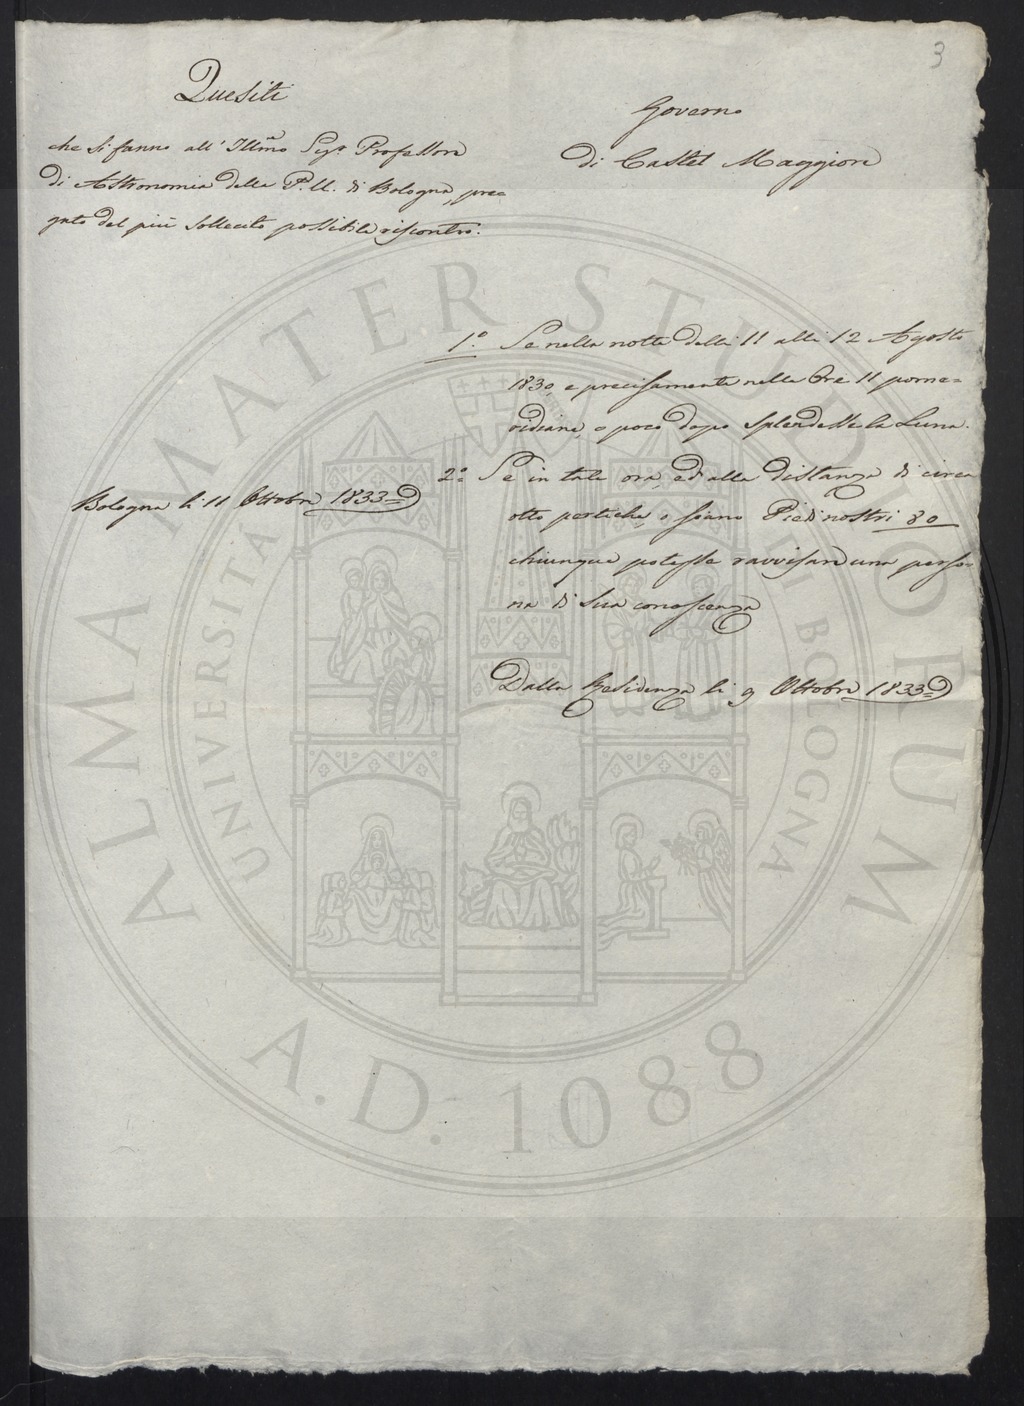 3
Quesiti
che si fanno all' Illmo Sigr Professore
di Astronomia della P. U. di Bologna, pre=
gato del più sollecito possibile riscontro.
Governo
di Castel Maggiore
1.º Se nella notte delli 11 alli 12 Agosto
1830, e precisamente nelle Ore 11 pome=
ridiane, o poco dopo splendesse la Luna.
2.º Se in tale ora, ed alla distanza di circa
otto pertiche, o siano Piedi nostri 80
chiunque potesse ravvisare una perso=
na di sua conoscenza
Dalla Residenza li 9 Ottobre 1833=
Bologna li 11 Ottobre 1833=
ALMA MATER STUDIORUM
UNIVERSITÀ DI BOLOGNA
A.D. 1088